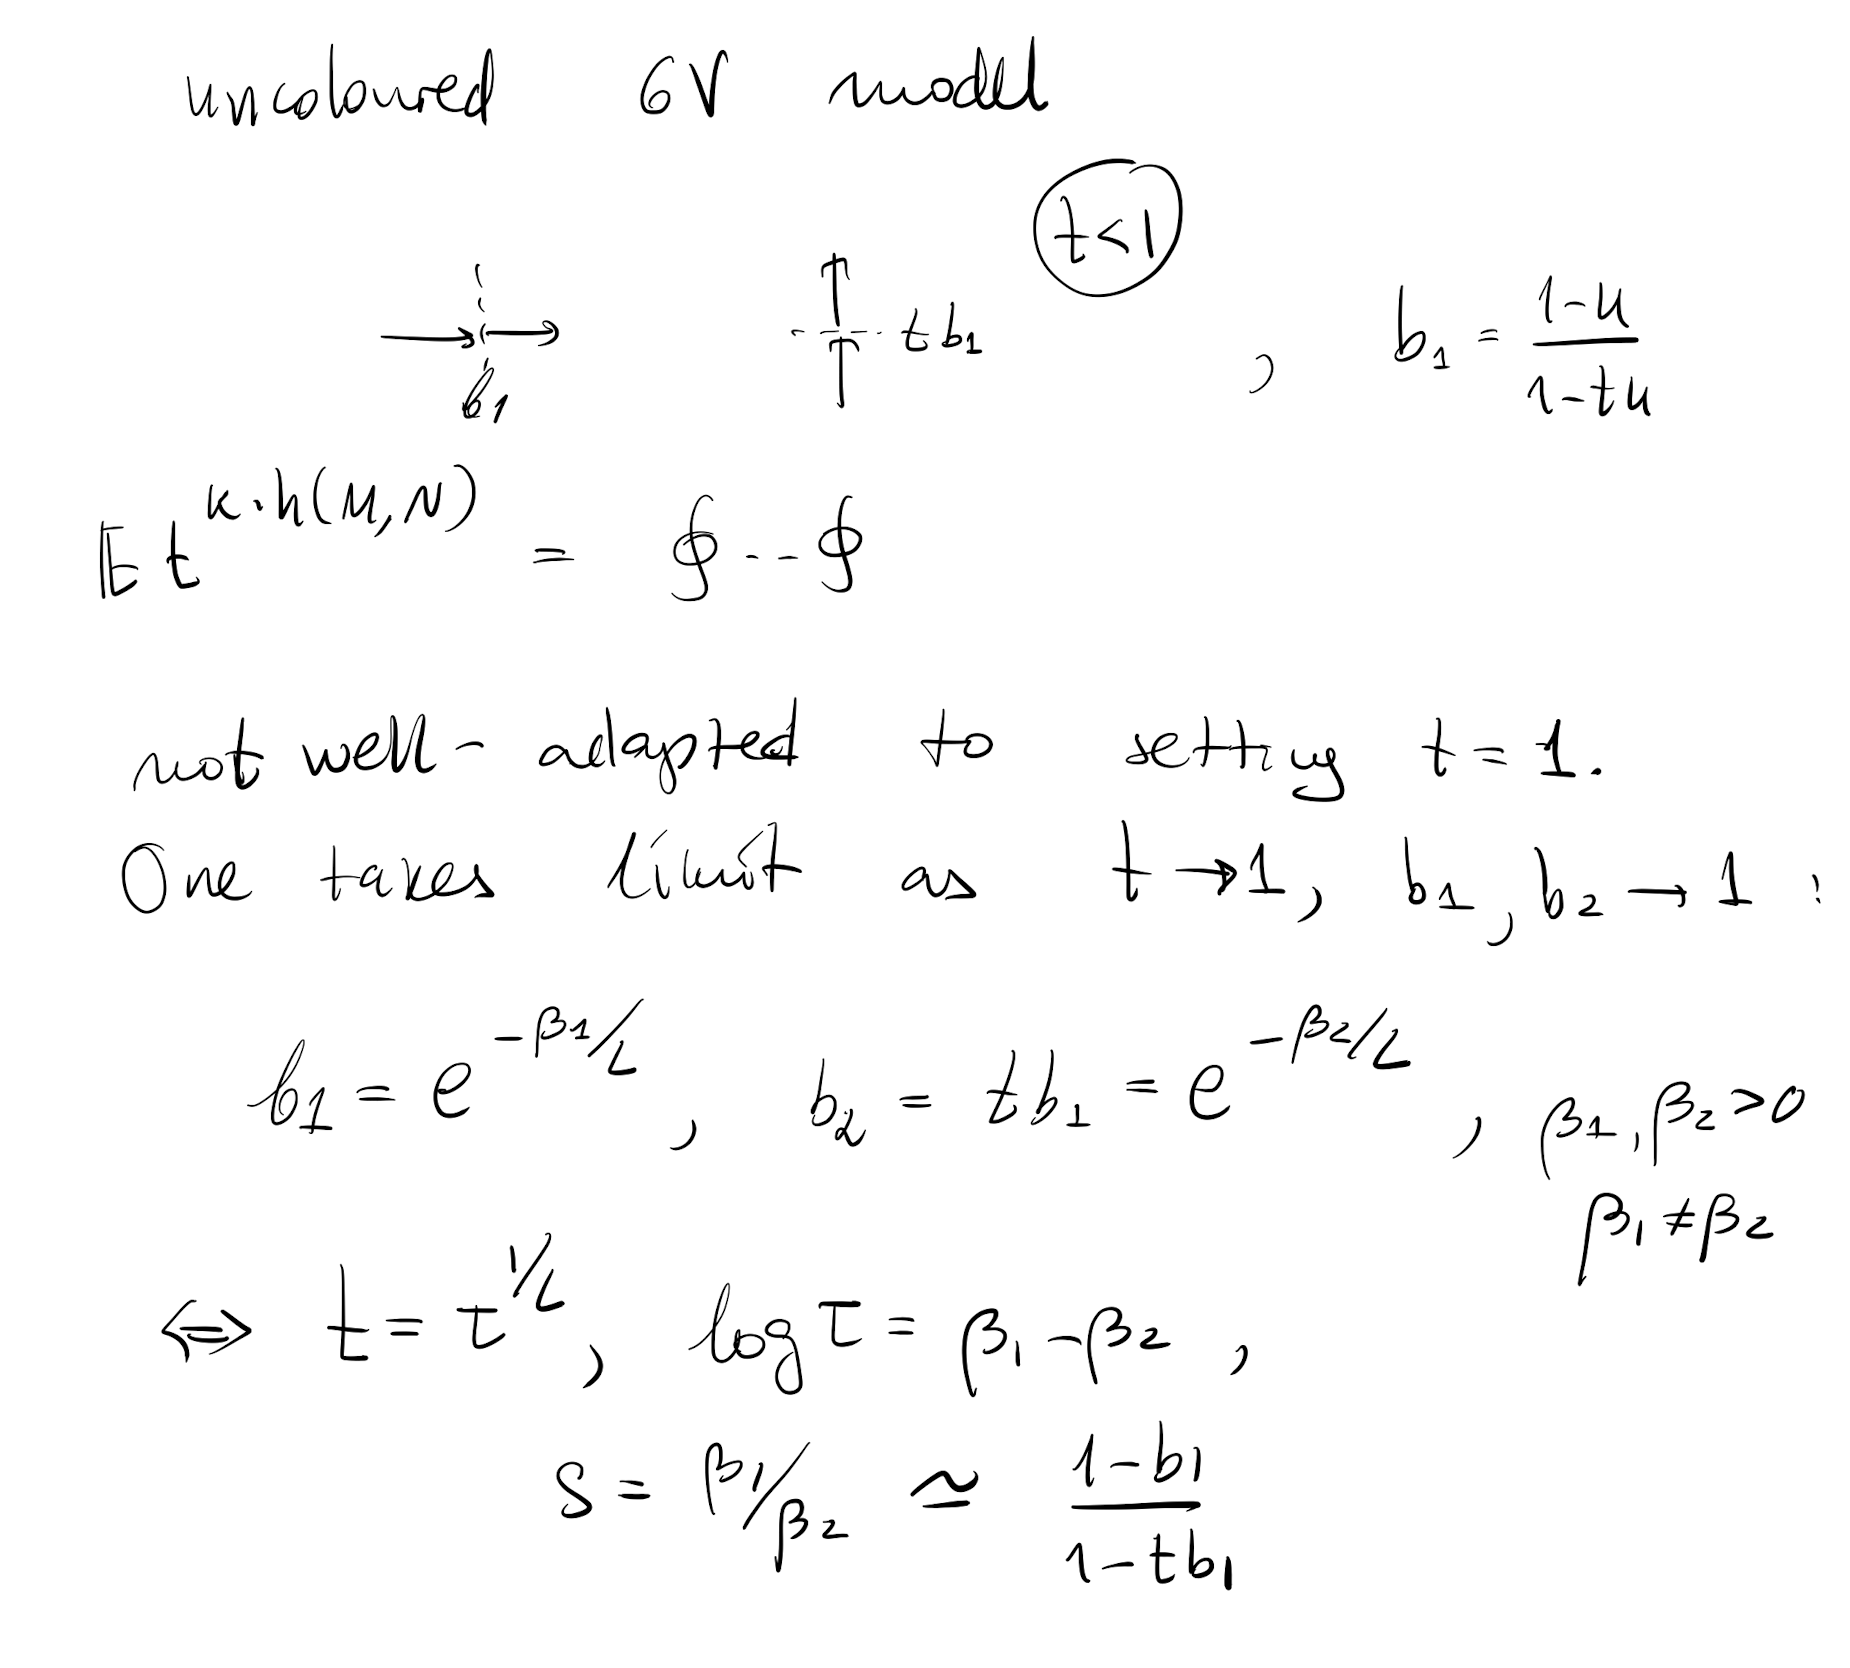 uncoloured 6V model
t<1
b₁ tb₁ , b₁ = (1-u)/(1-tu)
𝔼 t^{k·h(M,N)} = ∮--∮
not well-adapted to setting t=1.
One takes limit as t→1, b₁, b₂ → 1 :
b₁ = e^{-β₁/L} , b₂ = tb₁ = e^{-β₂/L} , β₁, β₂ >0
β₁ ≠ β₂
⇔ t = τ^{1/L} , log τ = β₁ - β₂ ,
s = β₁/β₂ ≃ (1-b₁)/(1-tb₁)